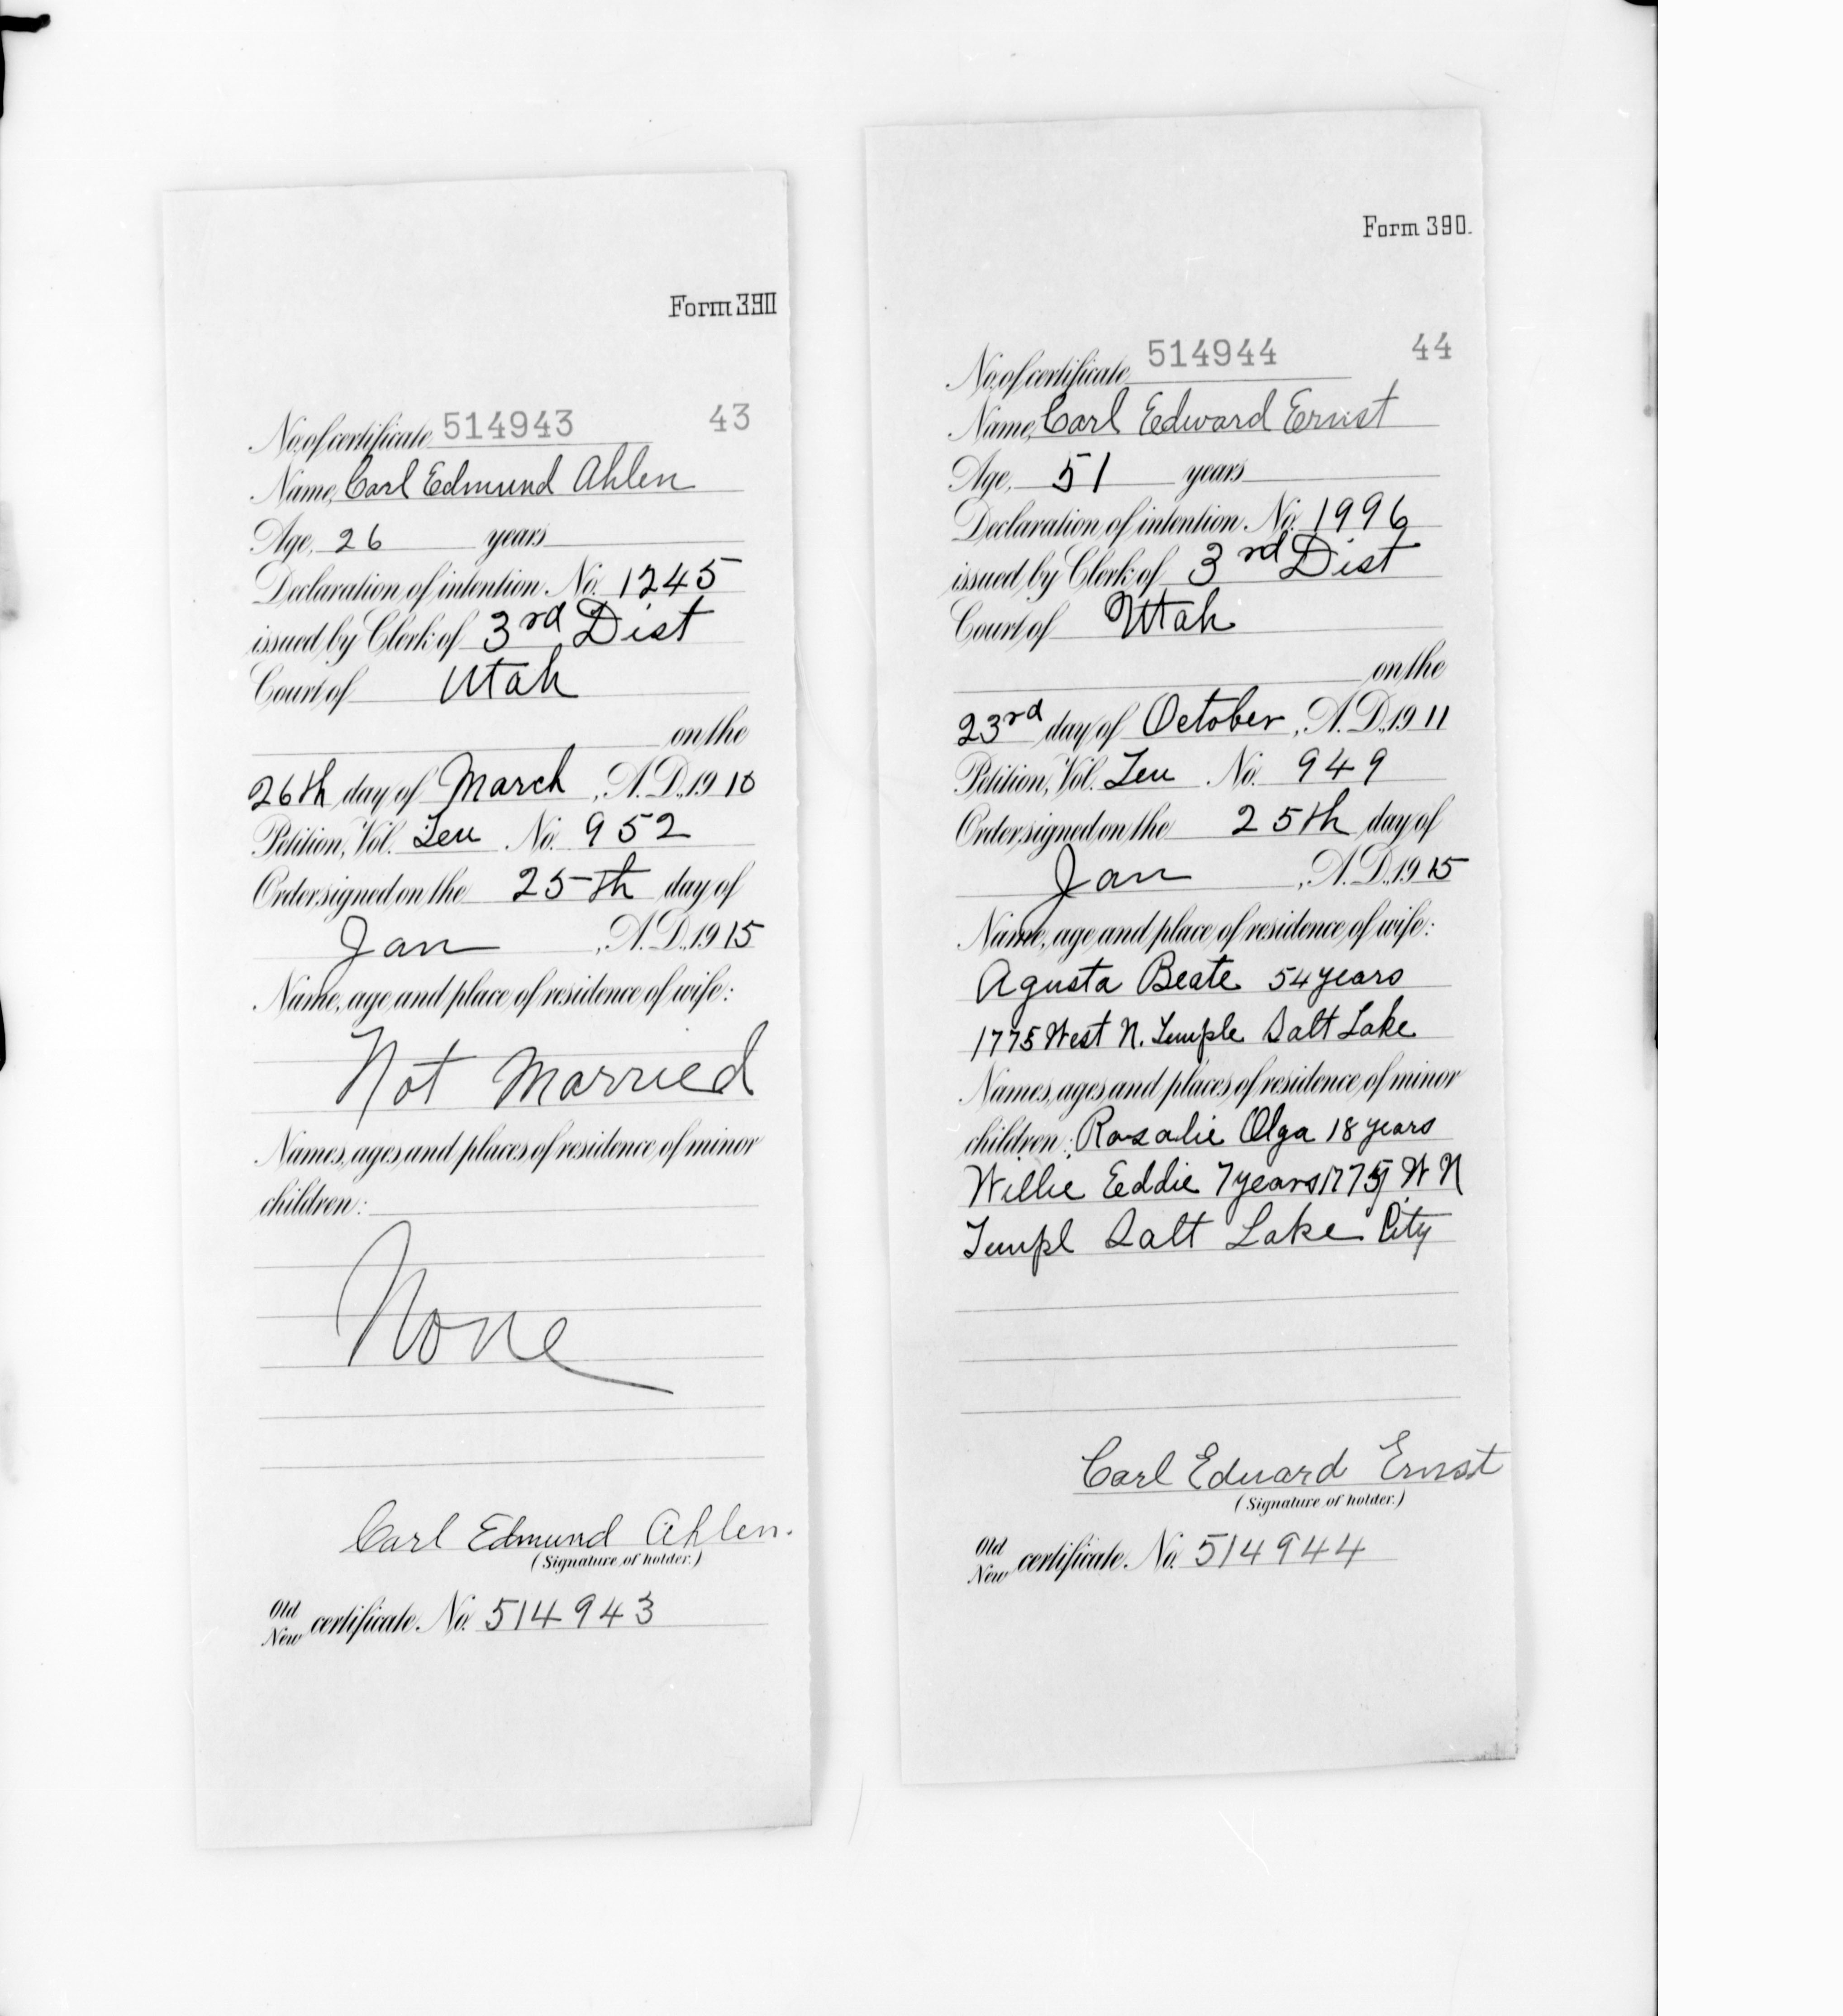 Form 390
No. of certificate 514943 43
Name, Carl Edmund Ahlen
Age, 26 years
Declaration of intention. No. 1245
issued by Clerk of 3rd Dist
Court of Utah
on the
26th day of March, A.D. 1910
Petition, Vol. Ten No. 952
Order signed on the 25th day of
Jan, A.D. 1915
Name, age and place of residence of wife:
Not Married
Names, ages and places of residence of minor
children:
None
Carl Edmund Ahlen.
(Signature of holder.)
Old
New certificate. No. 514943
Form 390.
No. of certificate 514944 44
Name, Carl Edward Ernst
Age, 51 years
Declaration of intention. No. 1996
issued by Clerk of 3rd Dist
Court of Utah
on the
23rd day of October, A.D. 1911
Petition, Vol. Ten No. 949
Order signed on the 25th day of
Jan, A.D. 1915
Name, age and place of residence of wife:
Agusta Beate 54 years
1775 West N. Temple Salt Lake
Names, ages and places of residence of minor
children: Rosalie Olga 18 years
Willie Eddie 7 years 1775 W N
Templ Salt Lake City
Carl Eduard Ernst
(Signature of holder.)
Old
New certificate. No. 514944